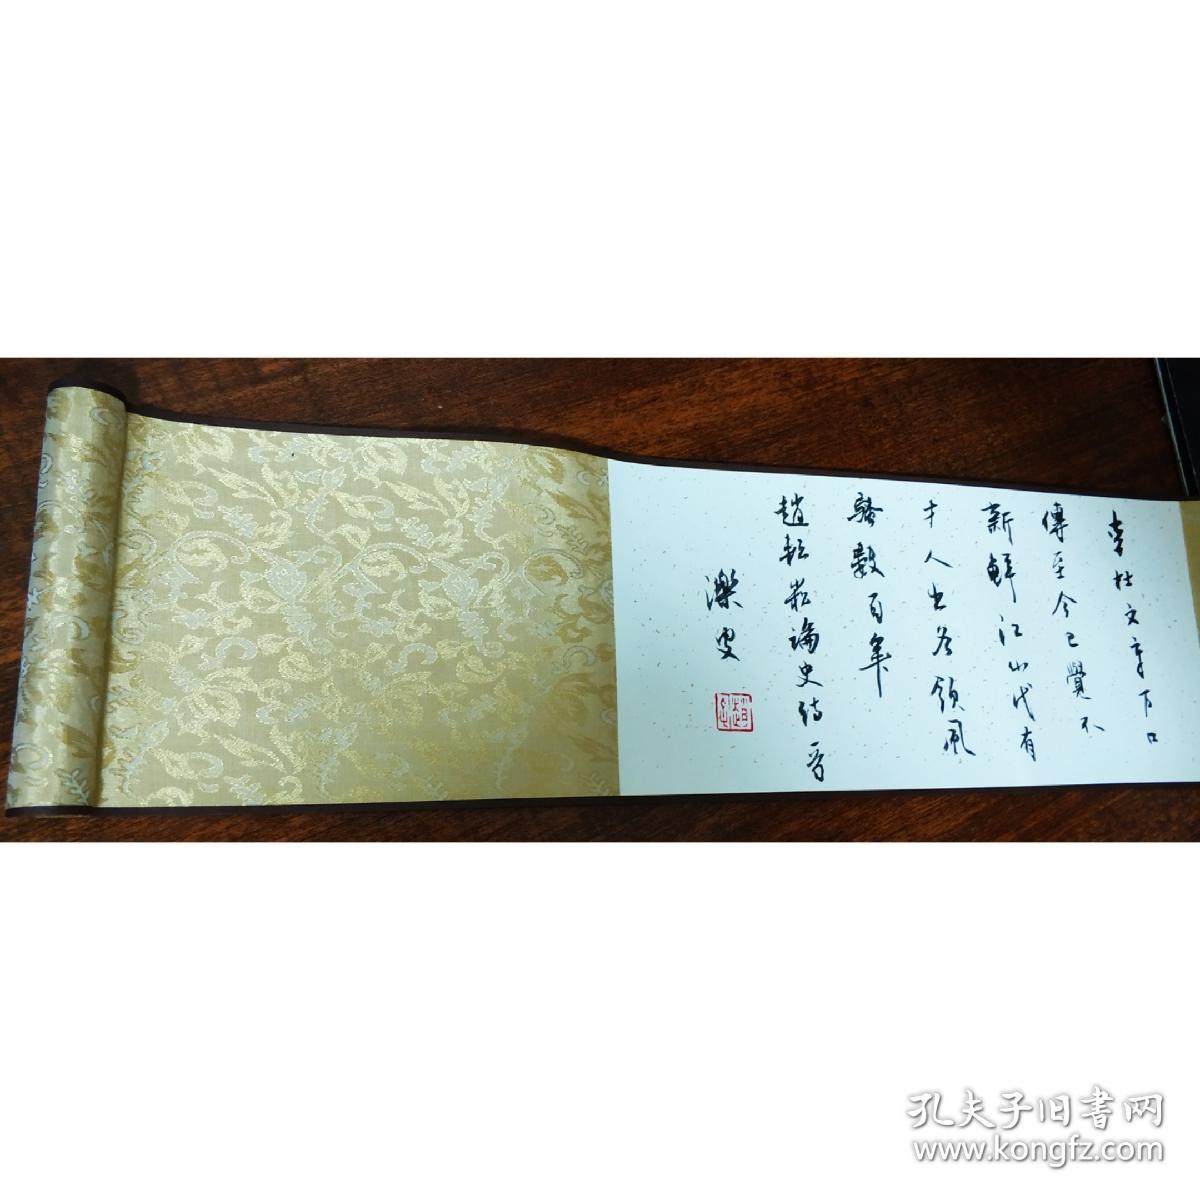 李杜文章万口
傳至今已覺不
新鮮江山代有
才人出各領風
騷數百年
趙甌
史
叟
孔夫子旧书网
www.kongfz.com